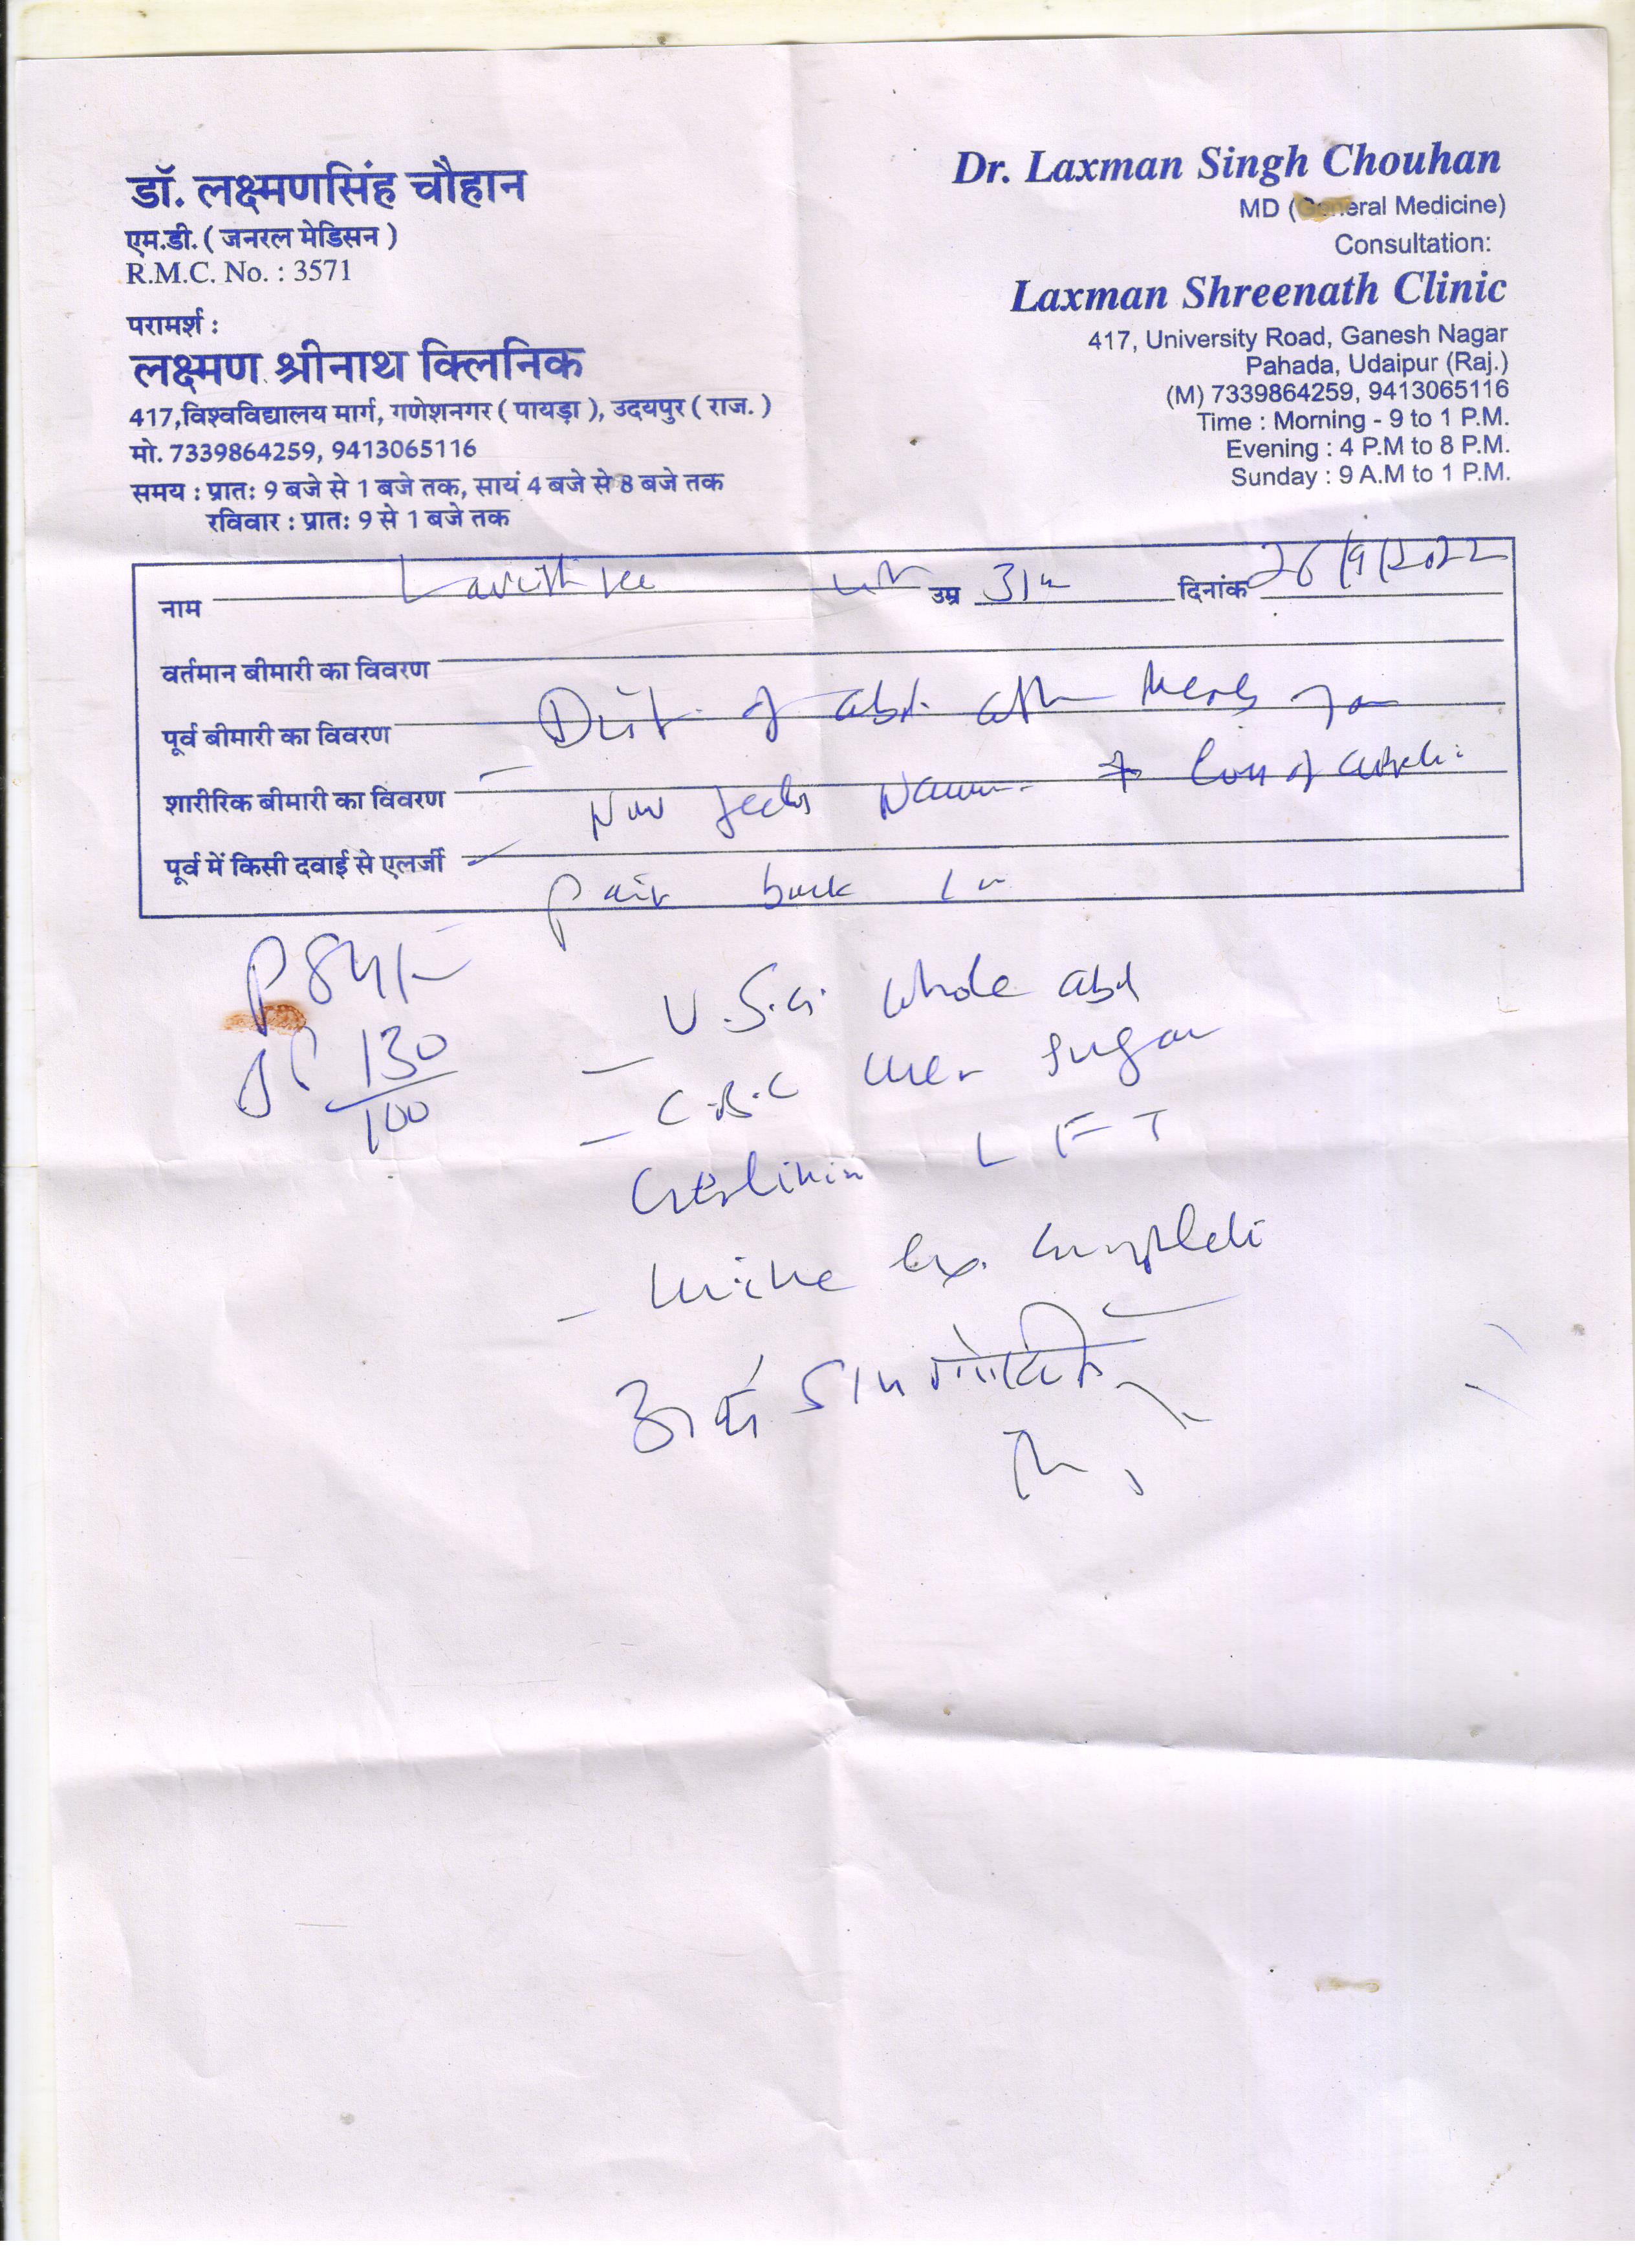 डॉ. लक्ष्मणसिंह चौहान
एम.डी. ( जनरल मेडिसन )
R.M.C. No. : 3571
परामर्श :
लक्ष्मण श्रीनाथ क्लिनिक
417,विश्वविद्यालय मार्ग, गणेशनगर ( पायड़ा ), उदयपुर ( राज. )
मो. 7339864259, 9413065116
समय : प्रातः 9 बजे से 1 बजे तक, सायं 4 बजे से 8 बजे तक
रविवार : प्रातः 9 से 1 बजे तक
Dr. Laxman Singh Chouhan
MD (General Medicine)
Consultation:
Laxman Shreenath Clinic
417, University Road, Ganesh Nagar
Pahada, Udaipur (Raj.)
(M) 7339864259, 9413065116
Time : Morning - 9 to 1 P.M.
Evening : 4 P.M to 8 P.M.
Sunday : 9 A.M to 1 P.M.
नाम उम्र 31 दिनांक 26/9/2022
वर्तमान बीमारी का विवरण
पूर्व बीमारी का विवरण Dist. of abd. after meals
शारीरिक बीमारी का विवरण Now feels loss of
पूर्व में किसी दवाई से एलर्जी
Pain back
P 84/-
130/100
- U.S.G. Whole abd
- C.B.C Urea Sugar
Creatinin LFT
- Urine Ex. Complete